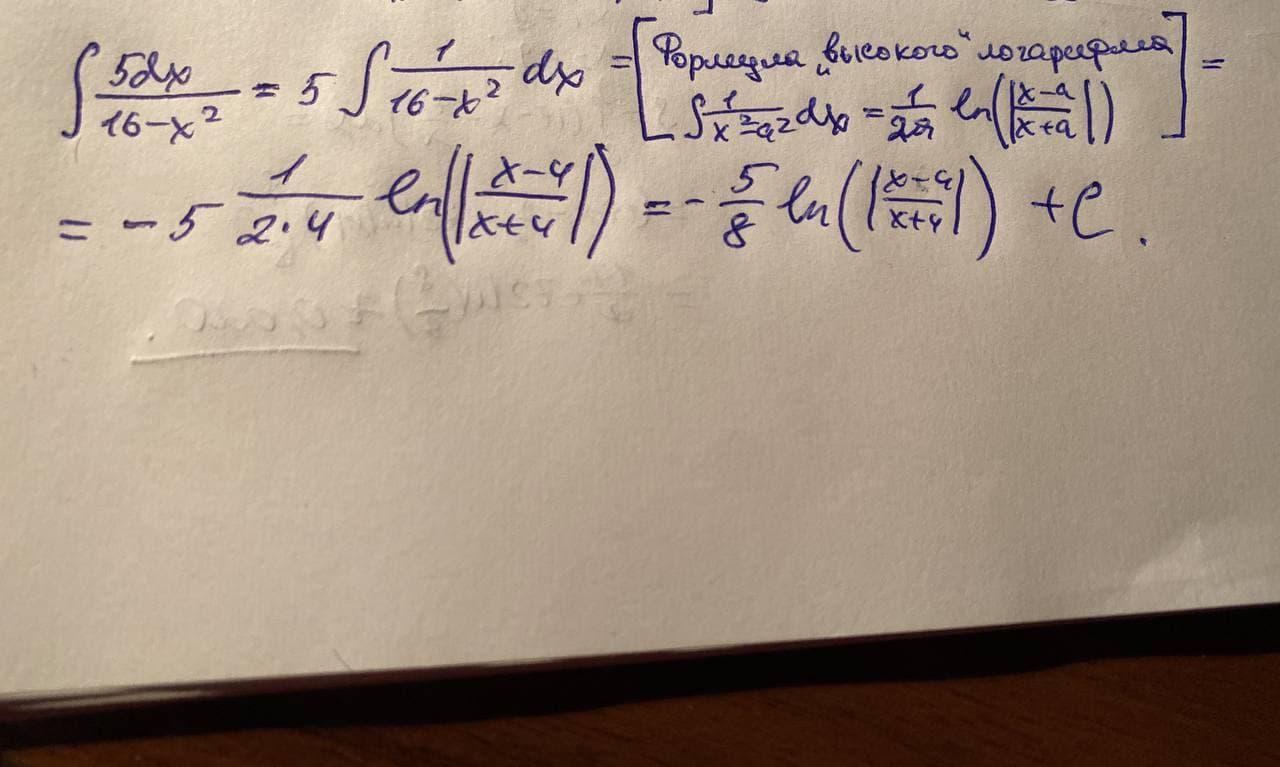 ∫ 5dx/(16-x²) = 5 ∫ 1/(16-x²) dx = [Формула „высокого“ логарифма
∫ 1/(x²-a²) dx = 1/(2a) ln(|(x-a)/(x+a)|)] =
= -5 1/(2·4) ln(|(x-4)/(x+4)|) = -5/8 ln(|(x-4)/(x+4)|) + C.